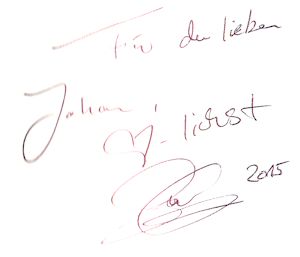 Für den lieben
Johann,
♡-lichst
2015